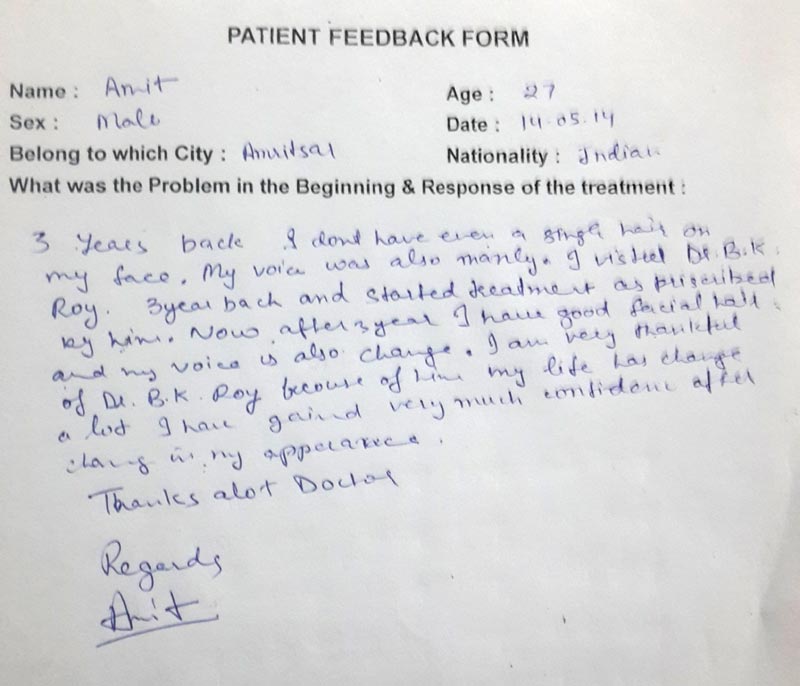 PATIENT FEEDBACK FORM
Name : Amit Age : 27
Sex : Male Date : 14.05.14
Belong to which City : Amritsar Nationality : Indian
What was the Problem in the Beginning & Response of the treatment :
3 Years back I dont have even a single hair on
my face. My voice was also manly. I visited Dr. B.K.
Roy. 3 year back and started treatment as priscribed
by him. Now after 3 year I have good facial hair.
and my voice is also change. I am very thankful
of Dr. B.K. Roy becouse of him my life has change
a lot I have gained very much confidence after
in my
Thanks alot Doctor
Regards
Amit